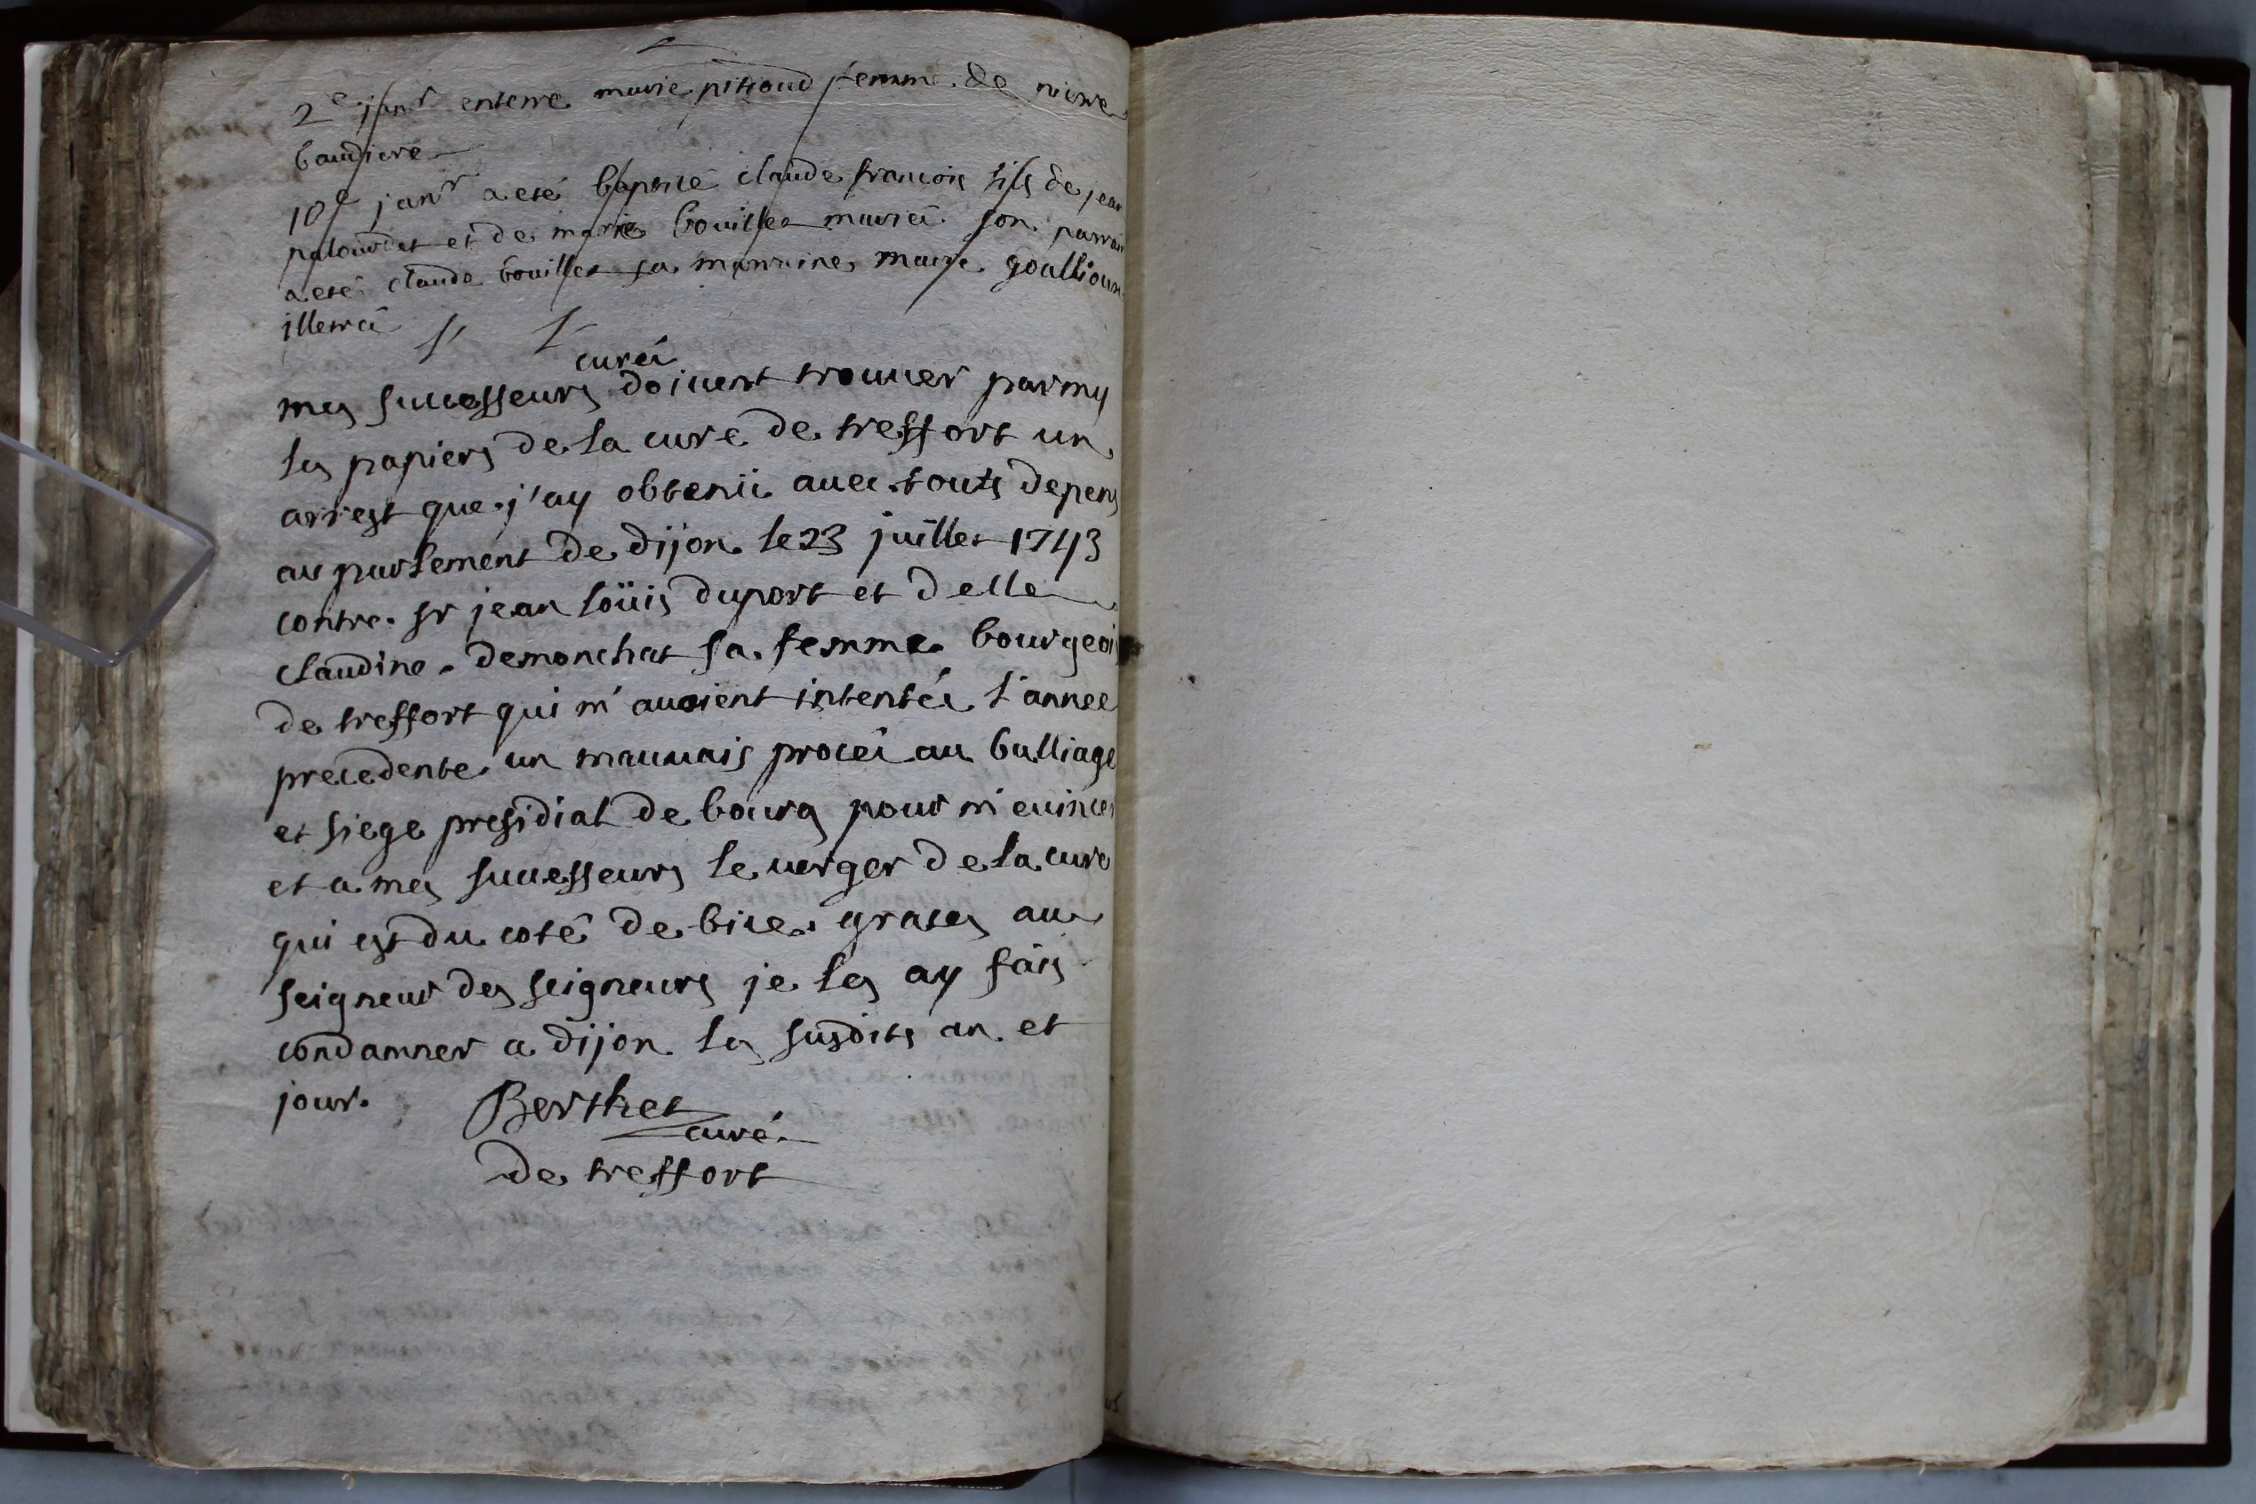 2e janr enterré marie pitioud femme de pierre
baudiere
10e janr a eté baptisé claude francois fils de jean
palourdet et de marie bouillet mariés son parrain
a eté claude bouillet sa marraine marie goallioux
illetrés
curés
mes successeurs doivent trouver parmy
les papiers de la cure de treffort un
arrest que j'ay obtenü avec touts depens
au parlement de dijon le 23 juillet 1743
contre sr jean loüis duport et delle
claudine demonchat sa femme bourgeois
de treffort qui m'avoient intentés l'année
precedente un mauvais procés au balliage
et siege presidial de bourg pour m'evincer
et a mes successeurs le verger de la cure
qui est du coté de bise graces au
seigneur des seigneurs je les ay fais
condamner a dijon les susdits an et
jour.
Berthet
curé
de treffort